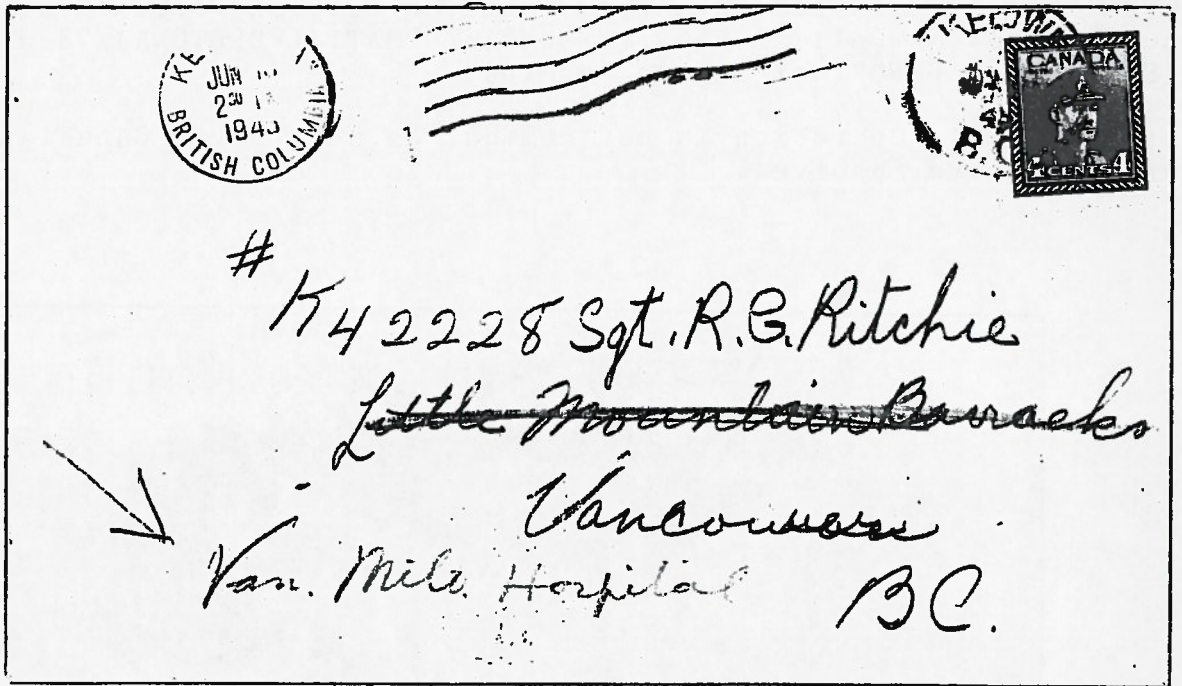 JUN
2 30
1943
BRITISH COLUMBIA
KELOWNA
B.C.
CANADA
4 CENTS 4
#
K42228 Sgt. R.G. Ritchie
Little Mountain Barracks
Vancouver
Van. Mile. Hospital
BC.